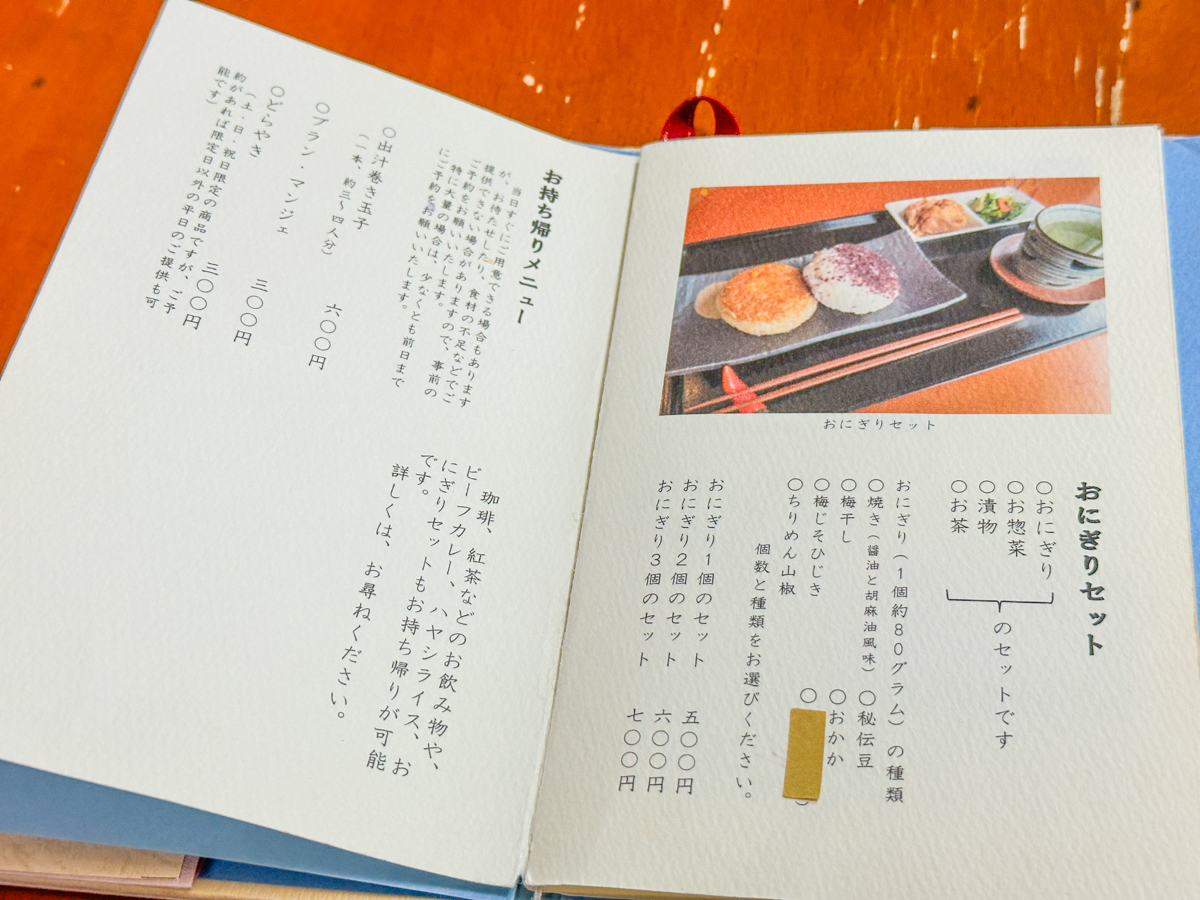 おにぎりセット
おにぎりセット
○おにぎり
○お惣菜
○漬物
○お茶
のセットです
おにぎり(1個約80グラム)の種類
○焼き(醤油と胡麻油風味)○秘伝豆
○梅干し ○おかか
○梅じそひじき ○
○ちりめん山椒
個数と種類をお選びください。
おにぎり1個のセット 五〇〇円
おにぎり2個のセット 六〇〇円
おにぎり3個のセット 七〇〇円
お持ち帰りメニュー
当日すぐにご用意できる場合もあります
が、お待たせしたり、食材の不足などでご
提供できない場合がありますので、事前の
ご予約をお願いいたします。
特に大量の場合は、少なくとも前日まで
にご予約をお願いいたします。
○出汁巻き玉子 六〇〇円
(一本、約三〜四人分)
○ブラン・マンジェ 三〇〇円
○どらやき 三〇〇円
(土・日・祝日限定の商品ですが、ご予
約があれば限定日以外の平日のご提供も可
能です)
珈琲、紅茶などのお飲み物や、
ビーフカレー、ハヤシライス、お
にぎりセットもお持ち帰りが可能
です。
詳しくは、お尋ねください。